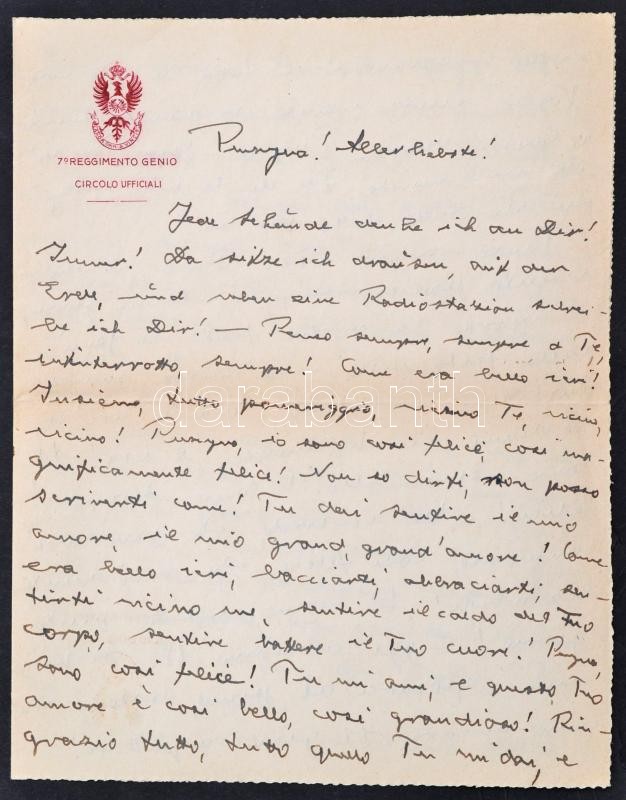 7º REGGIMENTO GENIO
CIRCOLO UFFICIALI
Allerliebste!
Jede Sekünde denke ich an Dir!
Immer! Da sitze ich draüsen, auf der
Erde, ünd neben eine Radiostazion schrei-
be ich Dir! — Penso sempre, sempre a Te,
ininterrotto, sempre! Come era bello ieri!
Insieme, tutto pomariggio, vicino Te, vicino,
vicino! io sono cosi felice, cosi ma-
gnificamente felice! Non so dirti, non posso
scriverti come! Tu devi sentire il mio
amore, il mio grand, grand'amore! Come
era bello ieri, bacciarti, abraciarti, sen-
tirti vicino me, sentire il caldo del Tuo
corpo, sentire battere il Tuo cuore!
sono cosi felice! Tu mi ami, e questo Tuo
amore è cosi bello, cosi grandioso! Rin-
grazio tutto, tutto quello Tu mi dai, e
darabanth